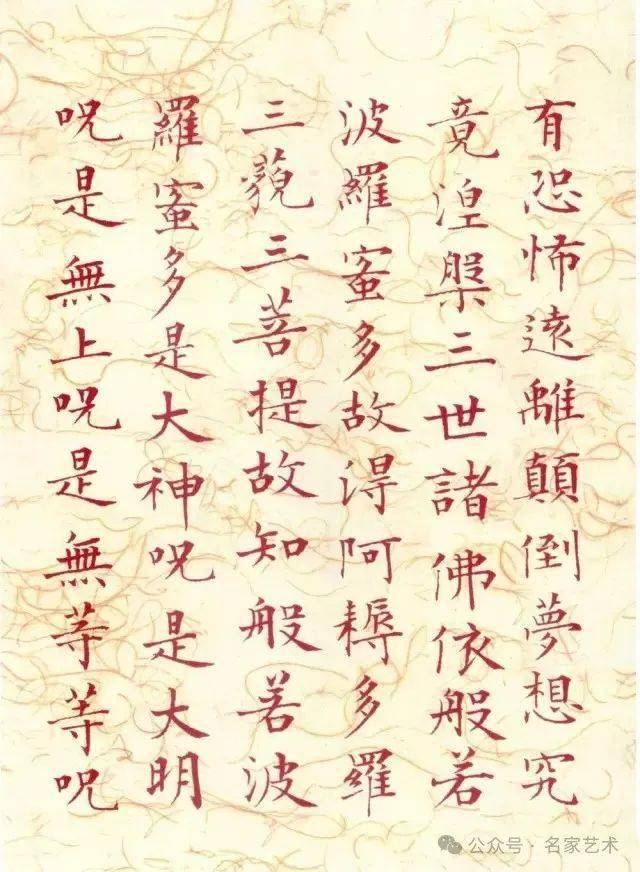 有恐怖遠離顛倒夢想究
竟涅槃三世諸佛依般若
波羅蜜多故得阿耨多羅
三藐三菩提故知般若波
羅蜜多是大神咒是大明
咒是無上咒是無等等咒
公众号·名家艺术